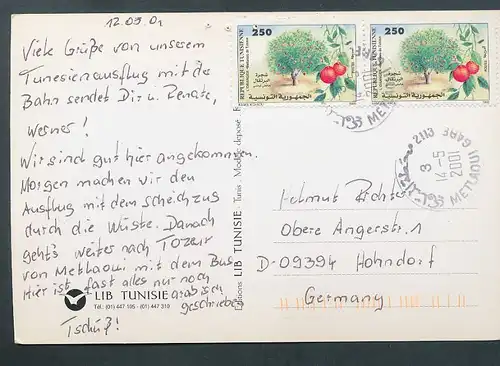 12.05.01
Viele Grüße von unserem
Tunesienausflug mit der
Bahn sendet Dir u. Renate,
Werner!
Wir sind gut hier angekommen.
Morgen machen wir den
Ausflug mit dem Scheichzug
durch die Wüste. Danach
geht's weiter nach TOZEUR
von Methaoui mit dem Bus.
Hier ist fast alles nur noch
arabisch
geschrieben
Tschüß!
LIB TUNISIE
Tél.: (01) 447 195 - (01) 447 319
Editions LIB TUNISIE Tunis - Modèle déposé
250
REPUBLIQUE TUNISIENNE
شجرة
البرتقال
الجمهورية التونسية
250
REPUBLIQUE TUNISIENNE
شجرة
البرتقال
الجمهورية التونسية
2113 GARE METLAOUI
3
14-5
2001
Helmut Richter
Obere Angerstr. 1
D-09394 Hohndorf
Germany